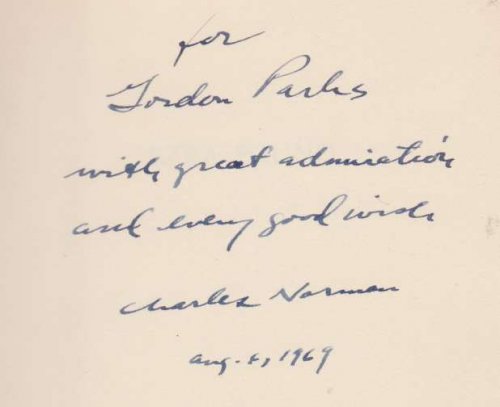 for
Gordon Parks
with great admiration
and every good wish
Charles Norman
Aug. 8, 1969